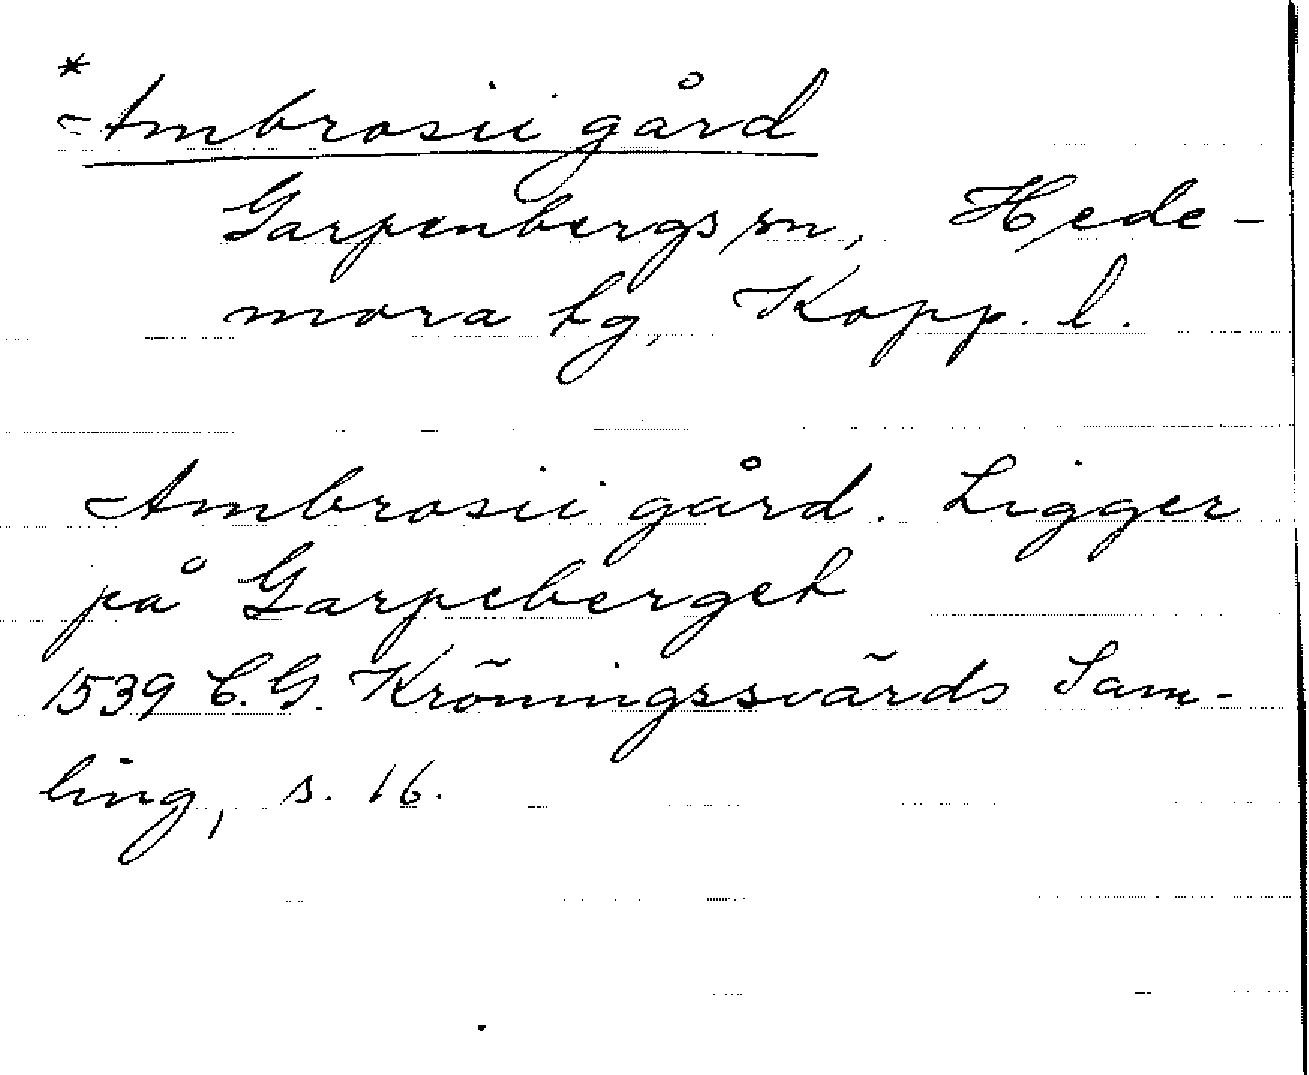 *
Ambrosii gård
Garpenbergs sn, Hede-
mora tg, Kopp. l.
Ambrosii gård. Ligger
på Garpeberget
1539 C.G. Kröningssvärds Sam-
ling, s. 16.